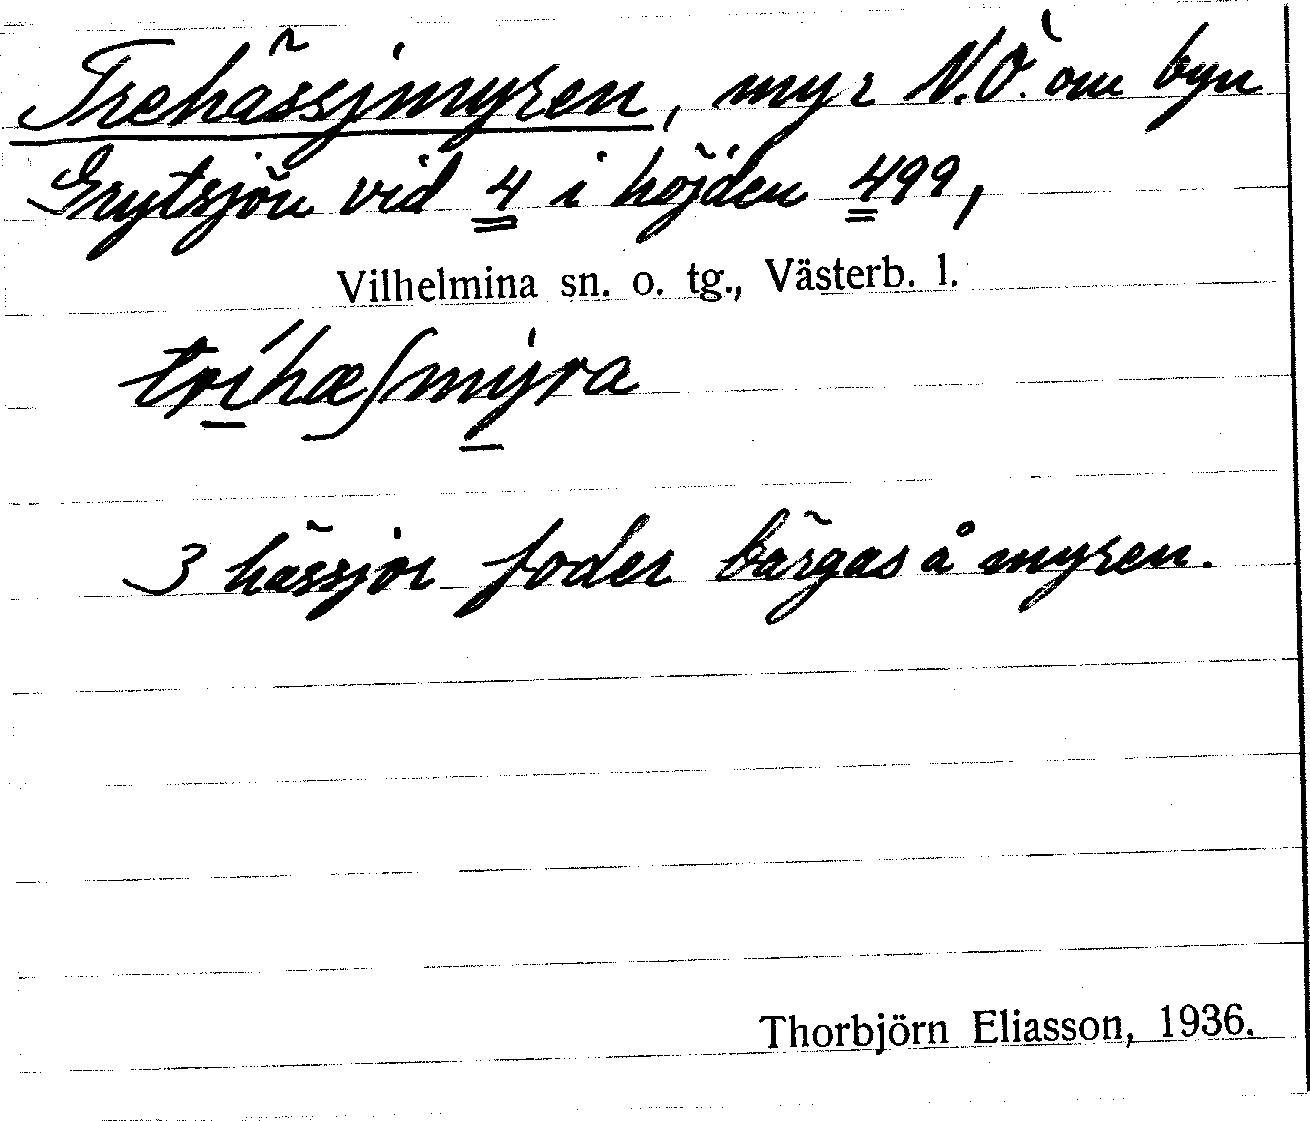 Trehässjmyren, myr N.Ö. om byn
Grytsjön vid 4 i höjden 499,
Vilhelmina sn. o. tg., Västerb. l.
tríhæʃmýra
3 hässjor foder bärgas å myren.
Thorbjörn Eliasson, 1936.